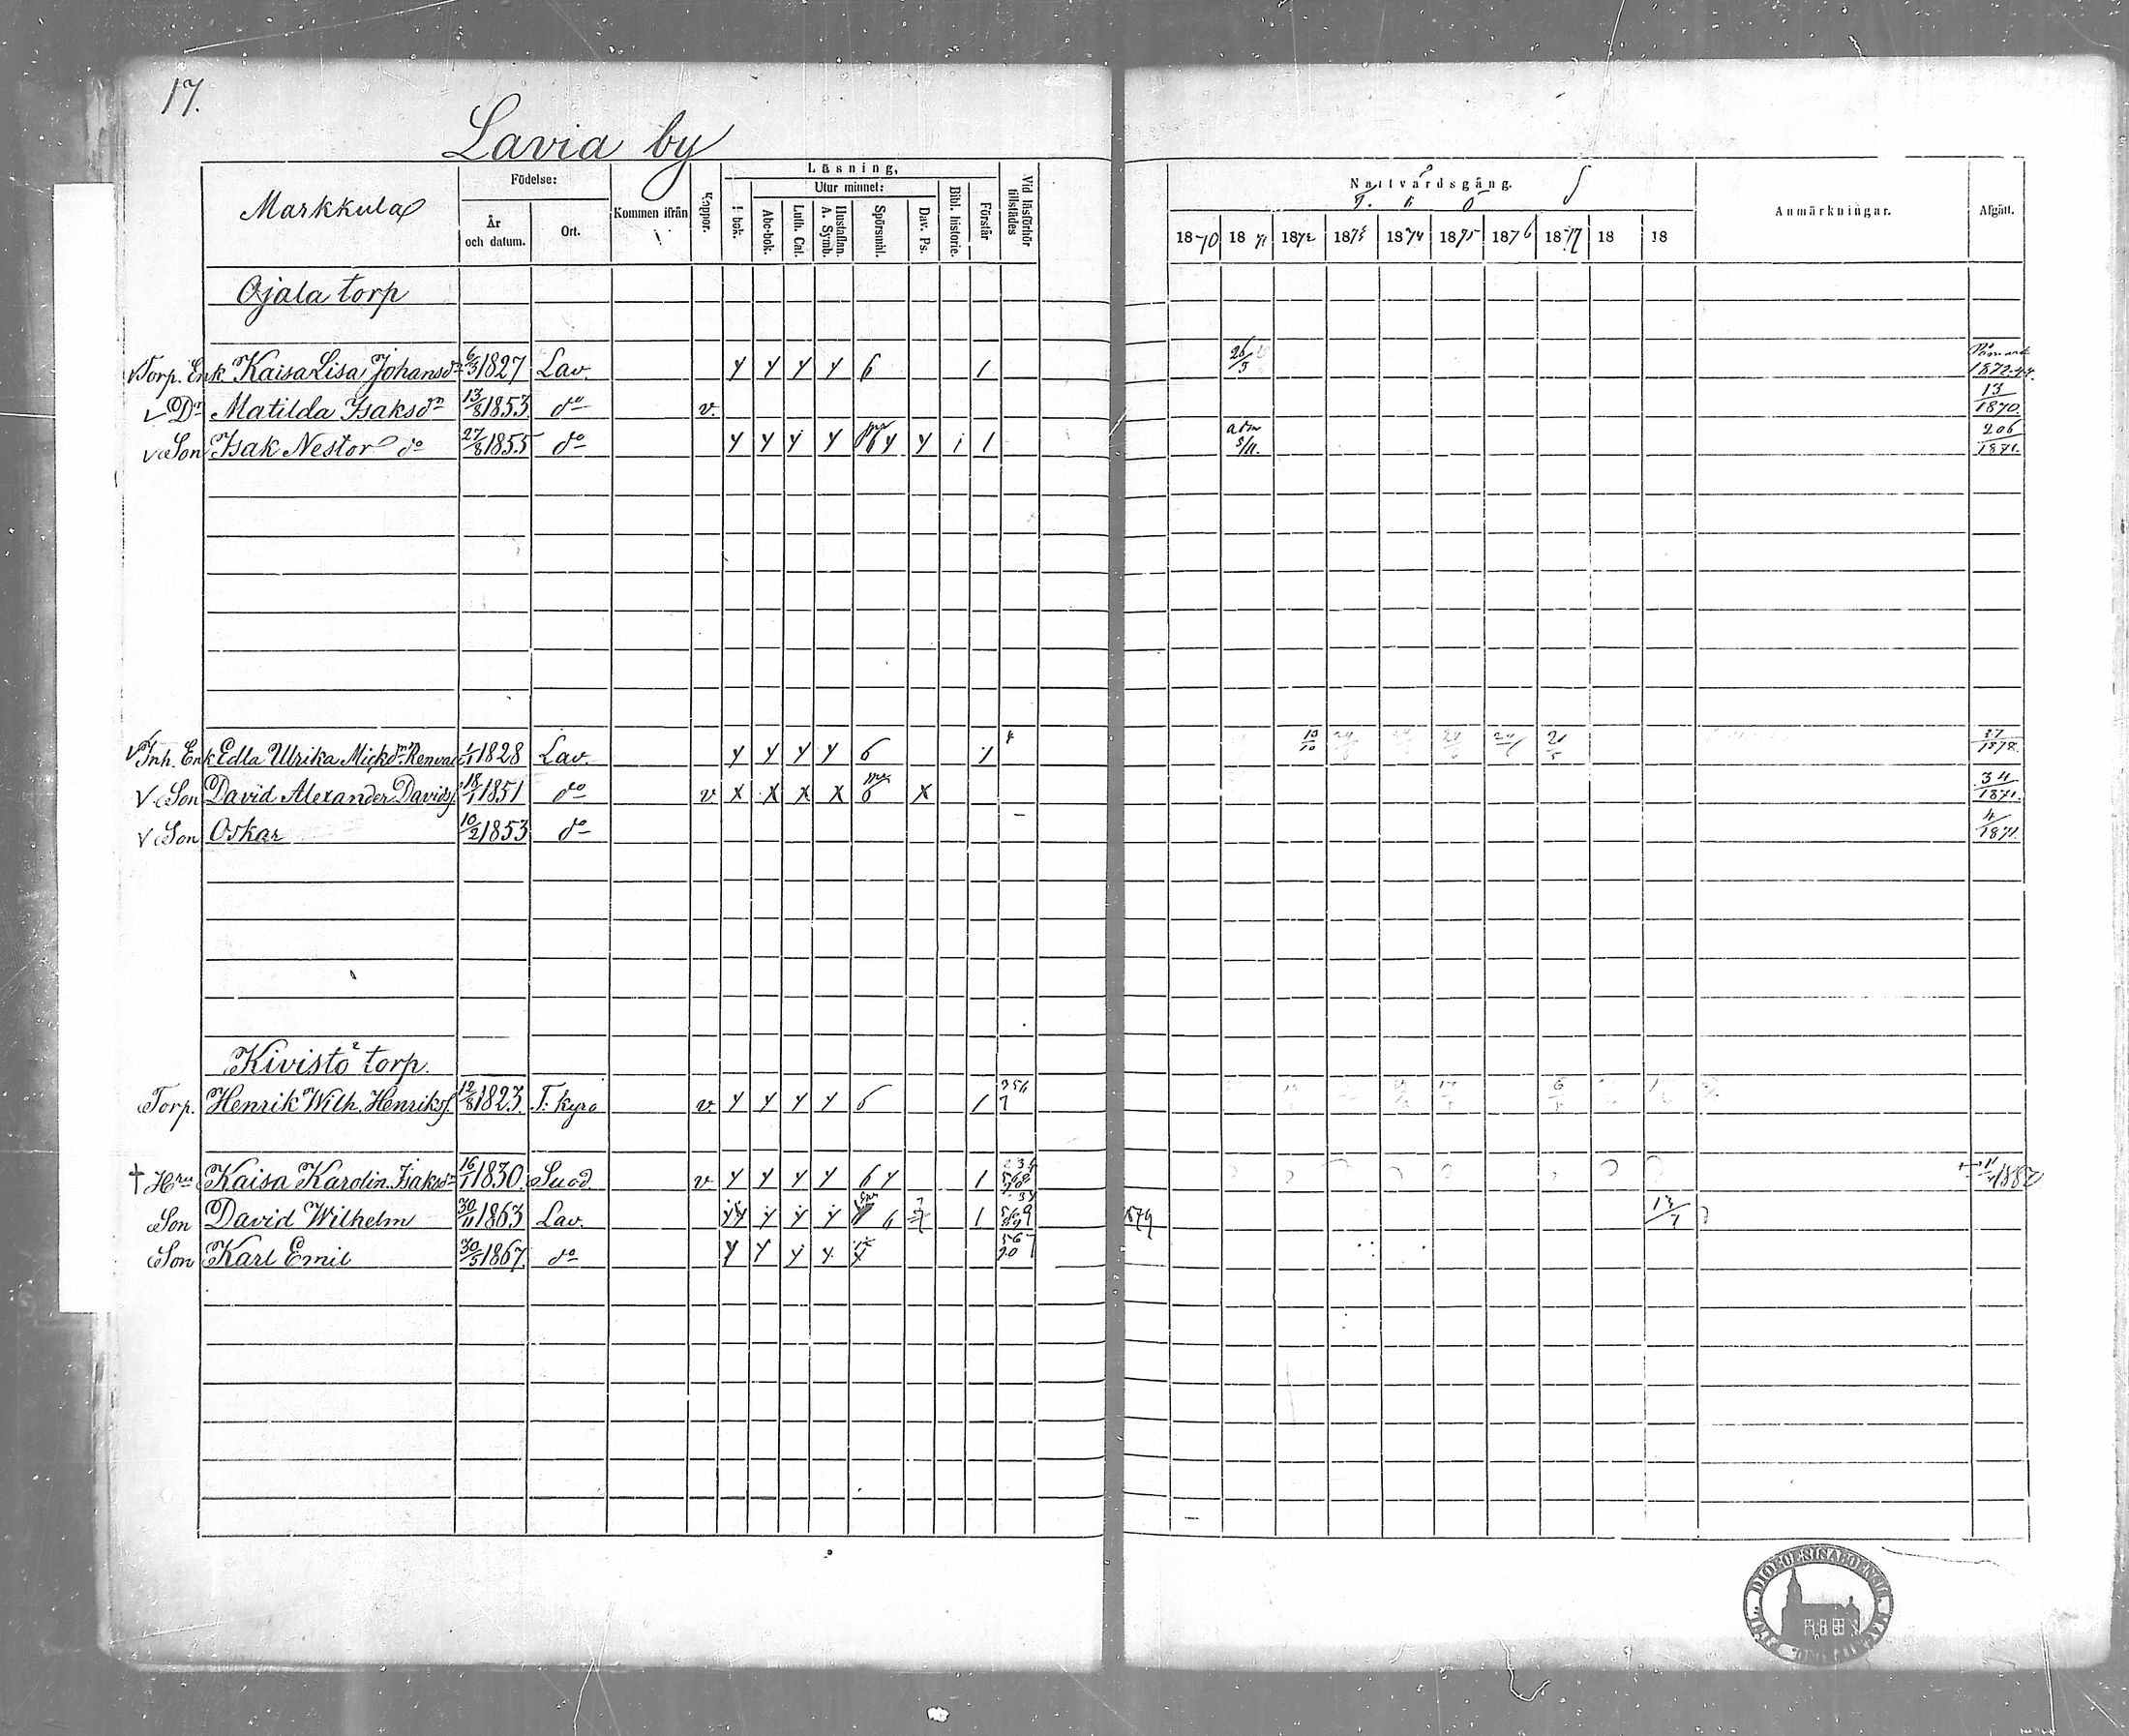 17.
Lavia by
Markkula
Födelse:
År och datum.
Ort.
Kommen ifrån
Koppor.
Läsning,
I bok.
Utur minnet:
Abc-bok.
Luth. Cat.
Hustaflan. A. Symb.
Spörsmål.
Dav. Ps.
Bibl. historie.
Förstår
Vid läsförhör tillstädes
Nattvardsgång.
1870 1871 1872 1873 1874 1875 1876 1877 18 18
Anmärkningar.
Afgått.
Ojala torp
v Torp. Enk Kaisa Lisa Johansdr 6/3 1827 Lav. y y y y 6 1 26/3 1872
v Dr Matilda Isaksdr 13/8 1853 do v. 13/1870.
v Son Isak Nestor do 27/8 1855 do y y y y y y i 1 adm 5/11. 206/1871.
v Inh. Enk Edla Ulrika Mickdr 1/1 1828 Lav. y y y y 6 1 4 10/10 21/5 37/1878.
v Son David Alexander Davidsf. 18/1 1851 do v x x x x 6 x 34/1871.
v Son Oskar 10/2 1853 do 4/1871.
Kivistö torp.
Torp. Henrik Wilh. Henrikss. 12/8 1823. T. Kyro v. y y y y 6 1 6/5
† Hru Kaisa Karolin. Isaksdr 16/1 1830. Suod. v. y y y y 6 y 1 1880
Son David Wilhelm 30/11 1863 Lav. y y y y 6 1 1879 13/7
Son Karl Emil 30/5 1867. do y y y y